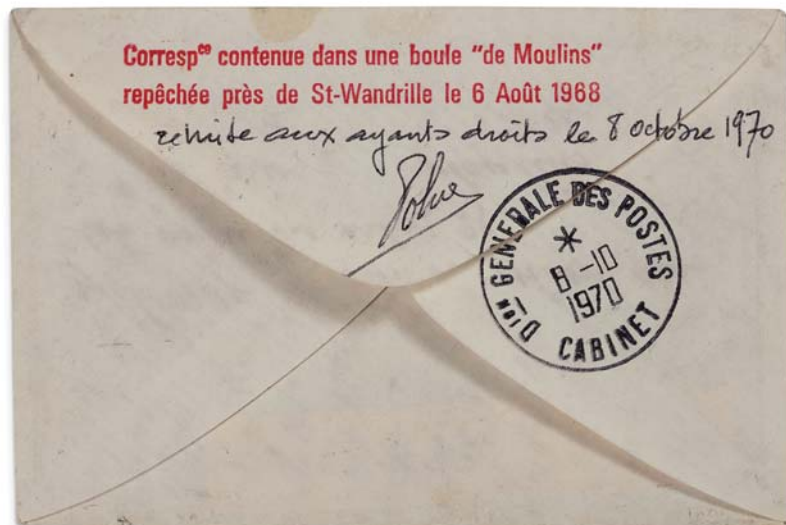 Correspce contenue dans une boule "de Moulins"
repêchée près de St-Wandrille le 6 Août 1968
remise aux ayants droits le 8 octobre 1970
DION GENERALE DES POSTES
8 -10
1970
CABINET